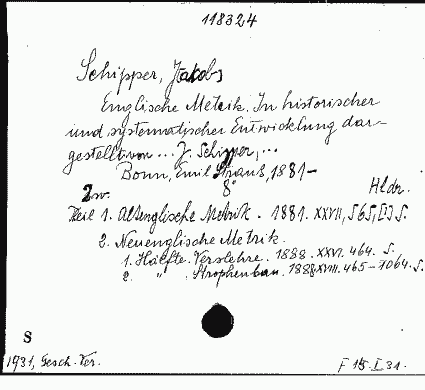 118324
Schipper, Jakob
Englische Metrik. In historischer
und systematischer Entwicklung dar-
gestellt von ... J. Schipper, ...
Bonn, Emil Strauß, 1881-
8°
2 Hldr.
Teil 1. Altenglische Metrik. 1881. XXVII, 565, [1] S.
2. Neuenglische Metrik.
1. Hälfte. Verslehre. 1888. XXVI. 464. S.
2. " . Strophenbau. 1888 XVIII. 465-1064. S.
S
1931, Gesch. Ver. F 15. I 31.